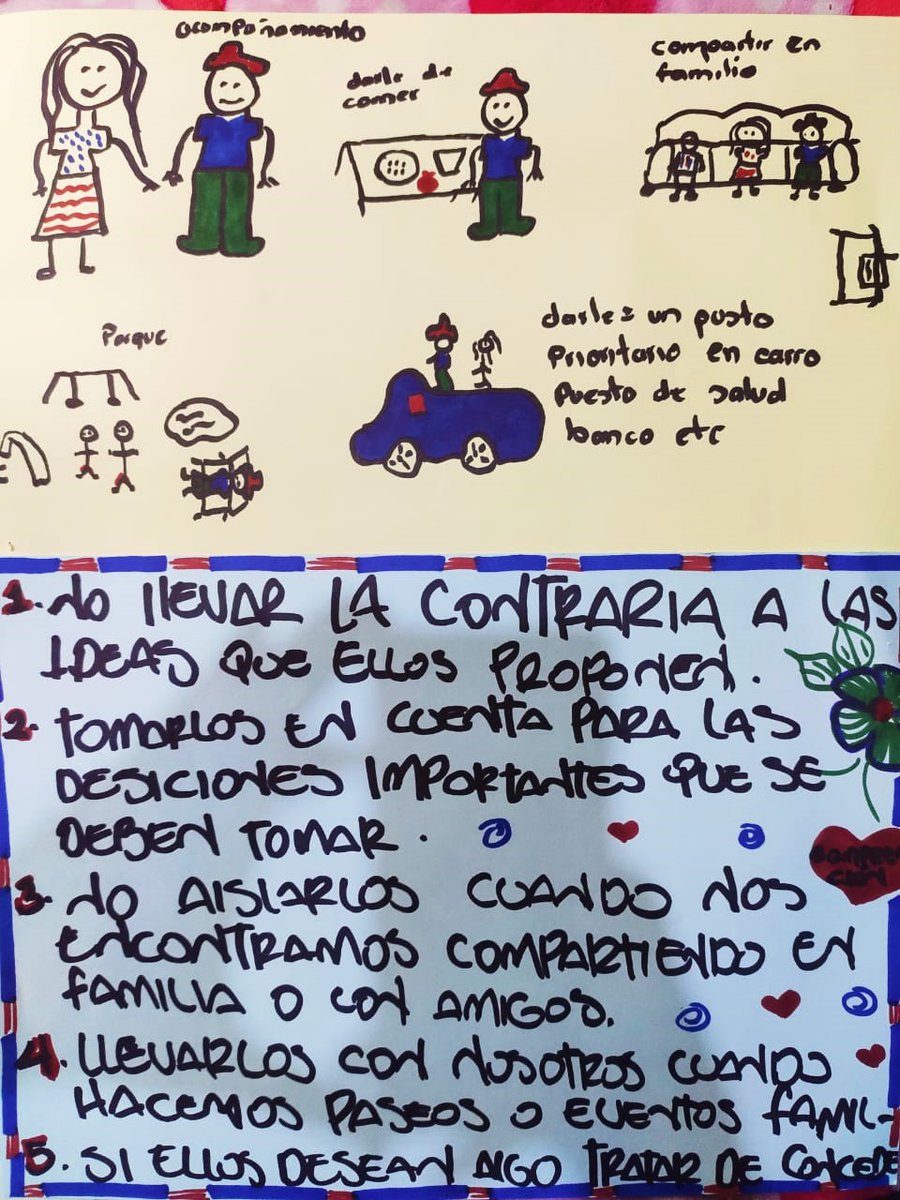 acompañamiento
darle de
comer
compartir en
familia
Parque
darles un pusto
prioritario en carro
puesto de salud
banco etc
1. NO llEVAR LA CONTRARIA A LAS
IDEAS QUE ELLOS PROPONEN.
2. TOMARLOS EN CUENTA PARA LAS
DESICIONES IMPORTANTES QUE SE
DEBEN TOMAR.
3. NO AISLARLOS CUANDO NOS
ENCONTRAMOS COMPARTIENDO EN
FAMILIA O CON AMIGOS.
4. LLEVARLOS CON NOSOTROS CUANDO
HACEMOS PASEOS O EVENTOS FAMIL-
5. SI ELLOS DESEAN ALGO TRATAR DE CONCEDE